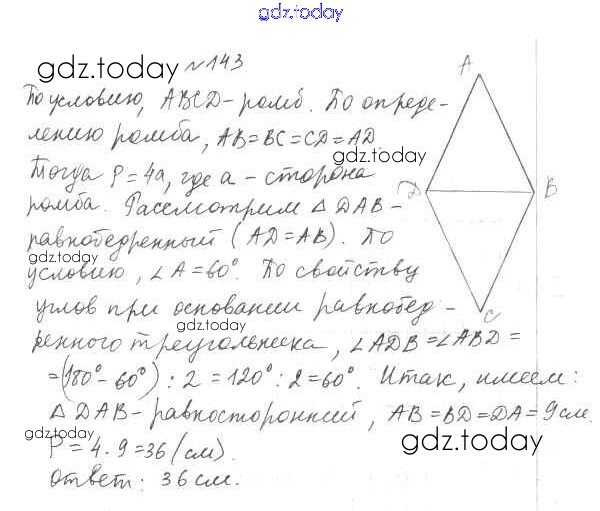 gdz.today
gdz.today №143
По условию, ABCD - ромб. По опреде-
лению ромба, AB = BC = CD = AD.
gdz.today
Тогда P = 4a, где a - сторона
ромба. Рассмотрим △ DAB -
равнобедренный (AD = AB). По
gdz.today
условию, ∠A = 60°. По свойству
углов при основании равнобед-
gdz.today
ренного треугольника, ∠ADB = ∠ABD =
= (180° - 60°) : 2 = 120° : 2 = 60°. Итак, имеем:
△ DAB - равносторонний, AB = BD = DA = 9 см.
gdz.today
P = 4 · 9 = 36 (см).
gdz.today
Ответ: 36 см.
A
D
B
C